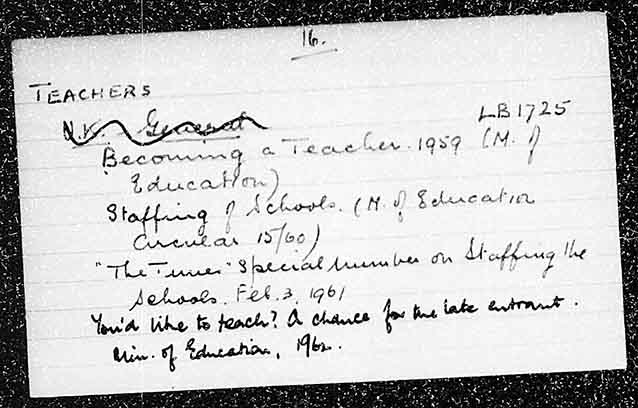 16.
TEACHERS
U.K. General
LB1725
Becoming a Teacher. 1959 (M. of
Education)
Staffing of Schools. (M. of Education
Circular 15/60)
"The Times" Special Number on Staffing the
Schools. Feb. 3, 1961
You'd like to teach? A chance for the late entrant.
Min. of Education, 1962.